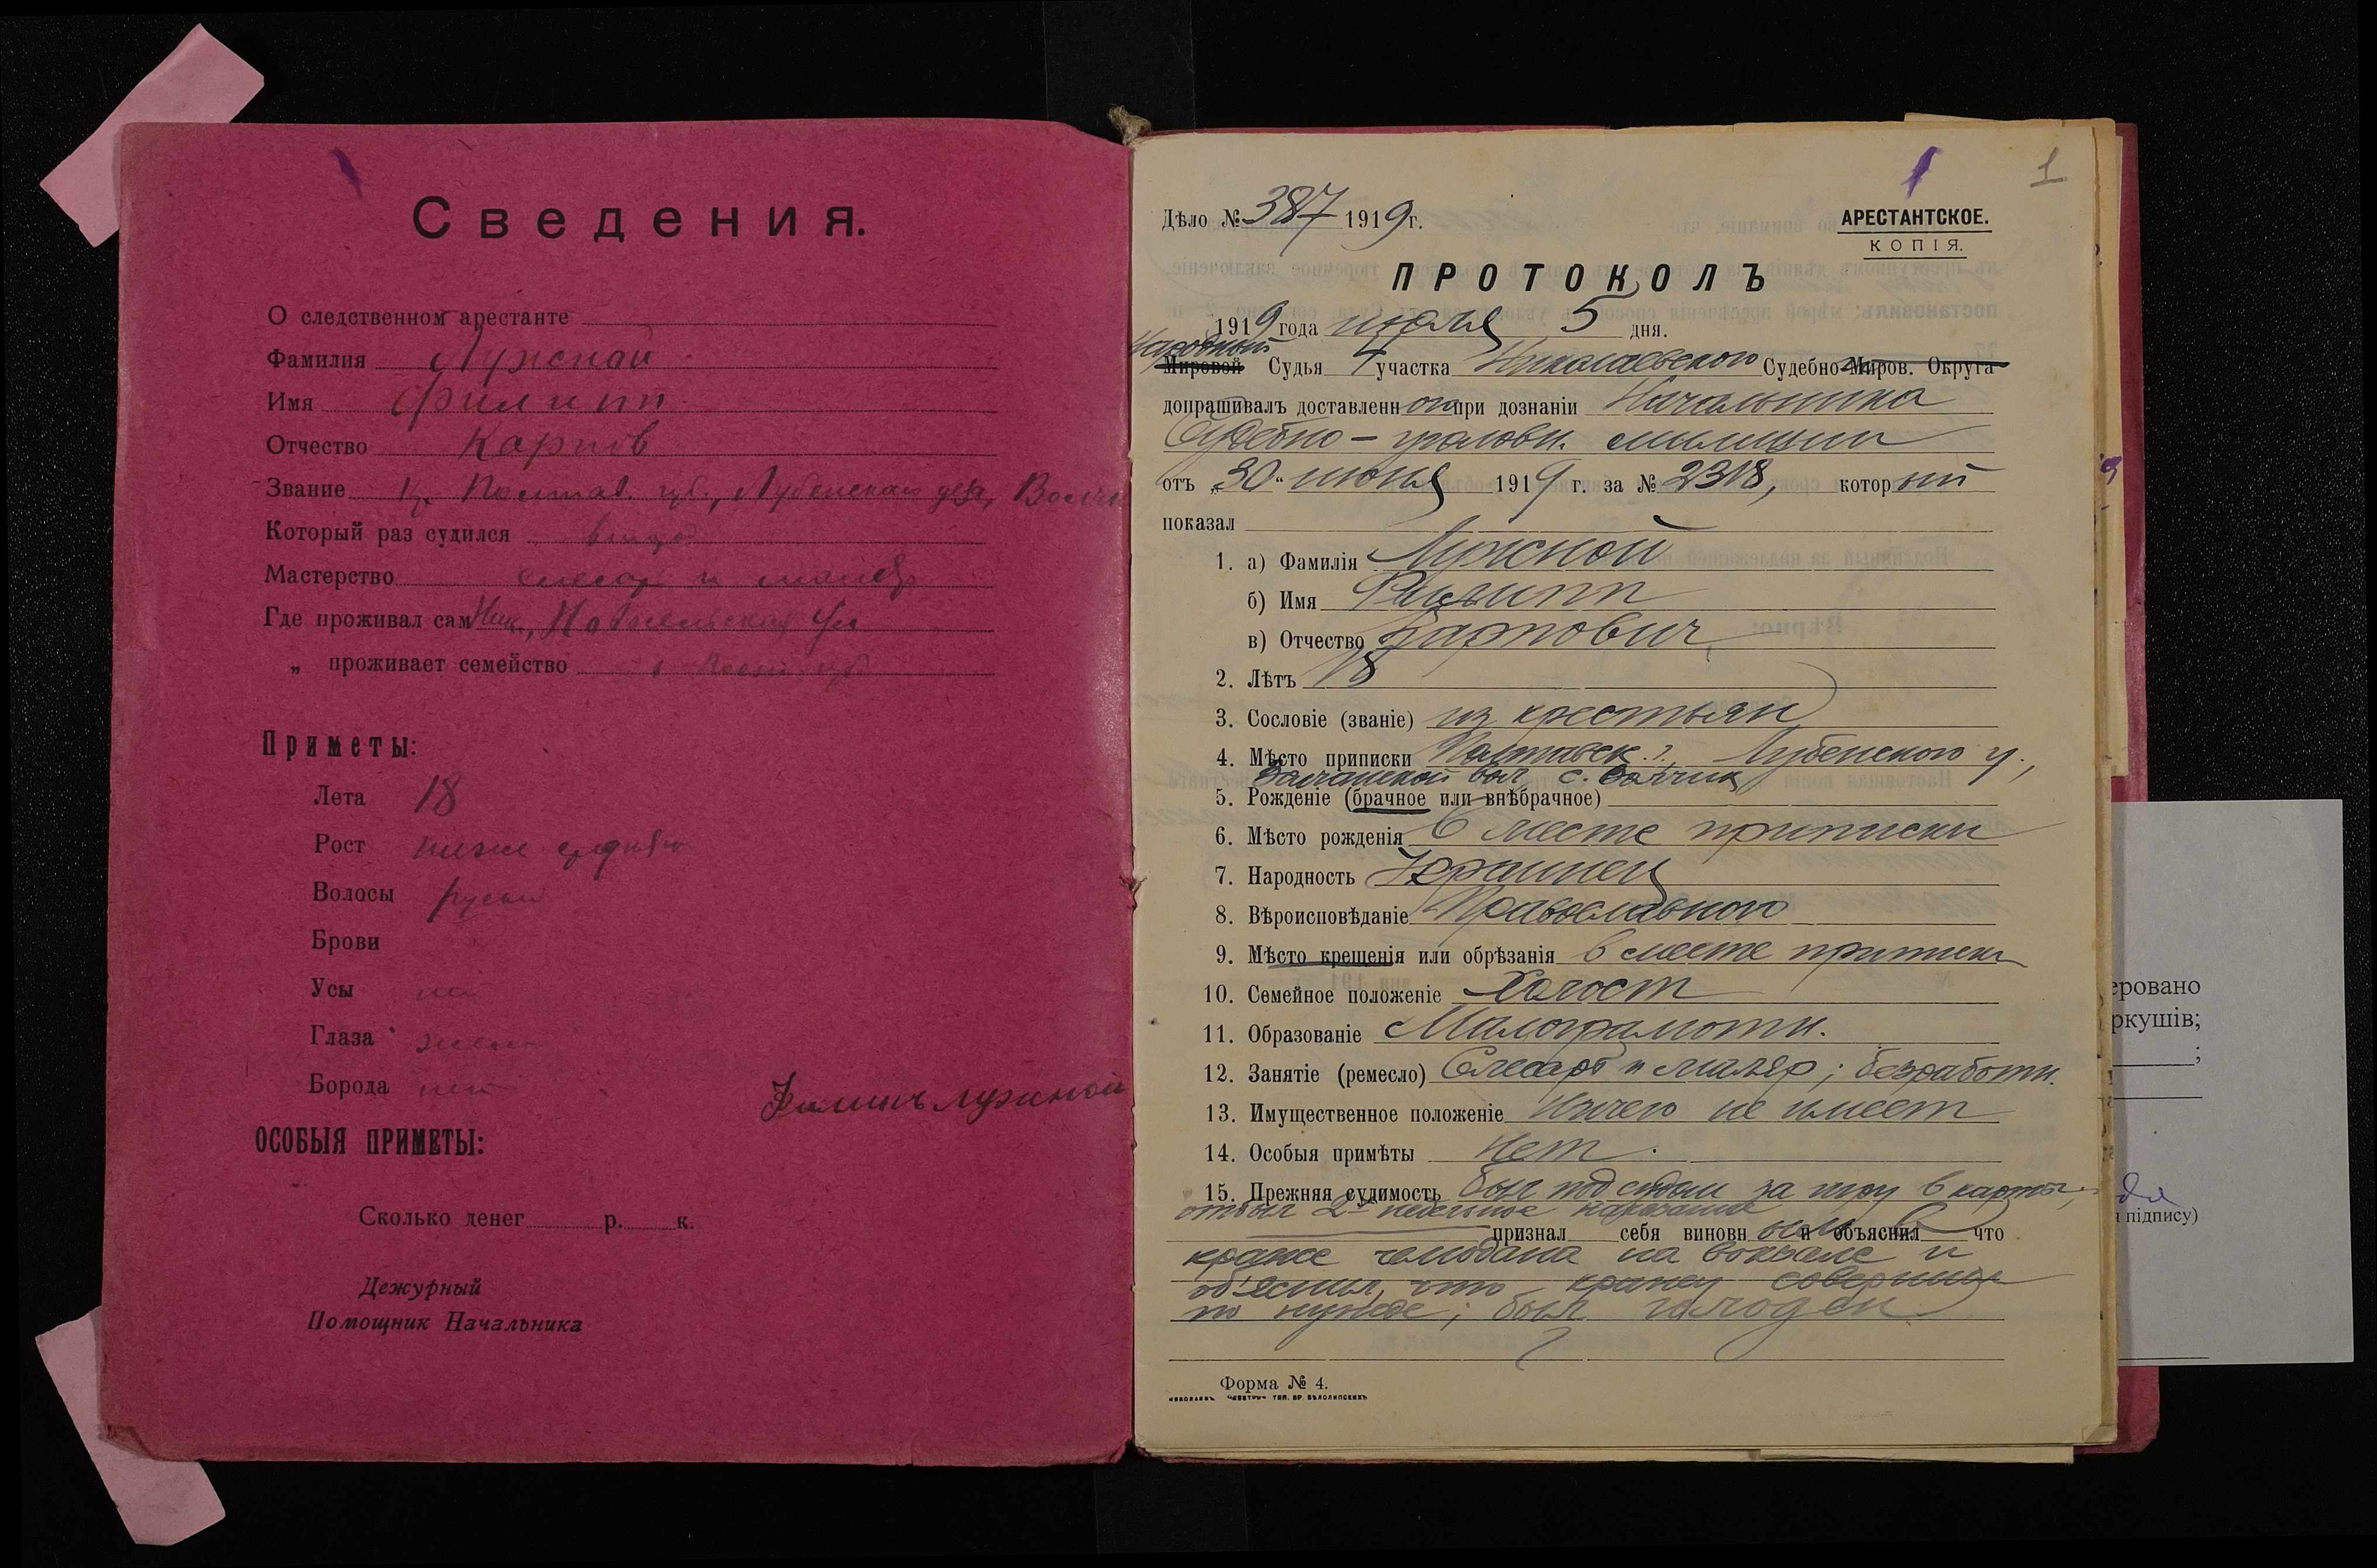 Сведения.
О следственном арестанте
Фамилия Лужной
Имя Филипп
Отчество Карпов
Звание Кр. Полтав. губ., Лубенская уез,
Который раз судился
Мастерство слесарь и маляр
Где проживал сам Ник,
„ проживает семейство
Приметы:
Лета 18
Рост ниже среднего
Волосы русые
Брови
Усы нет
Глаза
Борода нет
Филипъ лужной
ОСОБЫЯ ПРИМЕТЫ:
Сколько денег р. к.
Дежурный
Помощник Начальника
1
Дѣло № 387 1919 г.
АРЕСТАНТСКОЕ.
КОПІЯ.
ПРОТОКОЛЪ
1919 года июля 5 дня.
Народный
Мировой Судья 4 участка Николаевского Судебно-Миров. Округа
допрашивалъ доставленного при дознаніи Начальника
Судебно-уголовн. милиции
отъ „30“ июня 1919 г. за № 2318, который
показал
1. а) Фамилія Лужной
б) Имя Филипп
в) Отчество Карпович
2. Лѣтъ 18
3. Сословіе (званіе) из крестьян
4. Мѣсто приписки Полтавск. г., Лубенского у.,
вол. с.
5. Рожденіе (брачное или внѣбрачное)
6. Мѣсто рожденія В месте приписки
7. Народность Украинец
8. Вѣроисповѣданіе Православного
9. Мѣсто крещенія или обрѣзанія в месте приписки
10. Семейное положеніе Холост
11. Образованіе Малограмотн.
12. Занятіе (ремесло) Слесарь и маляр; безработн.
13. Имущественное положеніе Ничего не имеет
14. Особыя примѣты Нет.
15. Прежняя судимость был под судом за игру в карты,
отбыл 2х недельное наказание
признал себя виновным в и объяснил что
краже чемодана на вокзале и
об'яснил, что кражу совершил
по нужде; был голоден
Форма № 4.
еровано
ркушів;
;
підпису)